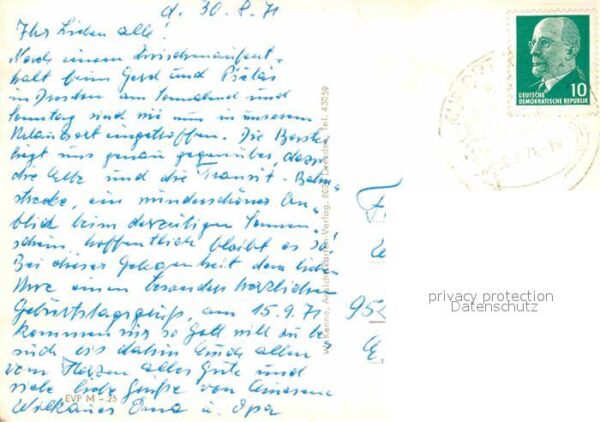 d. 30.8.71
Ihr Lieben alle!
Nach einem Zwischenaufent-
halt beim Gerd und
in Dresden am Sonnabend und
Sonntag sind wir nun in unserem
Urlaubsort eingetroffen. Die Bastei
liegt uns genau gegenüber, dazu
die Elbe und die Transit-Bahn-
strecke, ein wunderschöner An-
blick beim derzeitigen Sonnen-
schein, hoffentlich bleibt es so.
Bei dieser Gelegenheit dem lieben
Uwe einen besonders herzlichen
Geburtstagsgruß, am 15.9.71
kommen wir so Gott will zu Be-
such bis dahin Euch allen
vom Herzen alles Gute und
viele liebe Grüße von
Oma u. Opa
EVP M -.25
Kenne, Ansichtskarten-Verlag, Dresden, Tel. 43059
DEUTSCHE
DEMOKRATISCHE REPUBLIK
10
95
privacy protection
Datenschutz